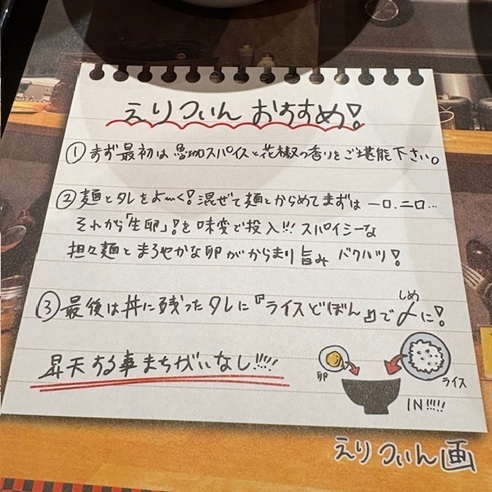 えりつぃん おすすめ!
① まず最初は魯珈スパイスと花椒の香りをご堪能下さい。
② 麺とタレをよ〜く!混ぜて麺とからめてまずは一口、二口…
それから「生卵」!を味変で投入!!! スパイシーな
担々麺とまろやかな卵がからまり旨みバクハツ!
③ 最後は丼に残ったタレに『ライスどぼん』で〆に!
しめ
昇天する事まちがいなし!!!!
卵
ライス
IN!!!!!
えりつぃん画